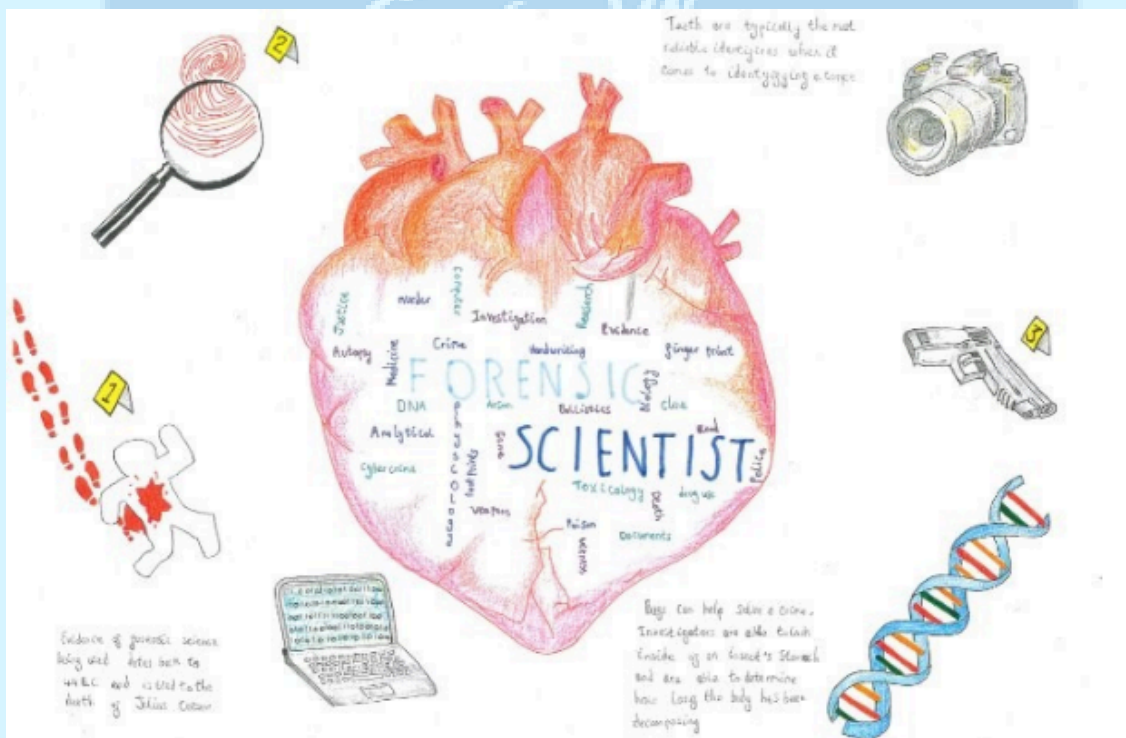 2
Teeth are typically the most
reliable identifiers when it
comes to identifying a corpse
Justice
Murder
Computer
Investigation
Research
Evidence
Autopsy
Medicine
Crime
Handwriting
finger print
FORENSIC
Biology
DNA
Arson
Ballistics
clue
Analytical
SCIENTIST
Police
Cybercrime
footprints
Toxicology
Death
drug use
Weapons
Poison
Documents
1
3
Evidence of forensic science
being used dates back to
44 B.C and is tied to the
death of Julius Caesar
Bugs can help solve a crime.
Investigators are able to look
inside of an insect's stomach
and are able to determine
how long the body has been
decomposing